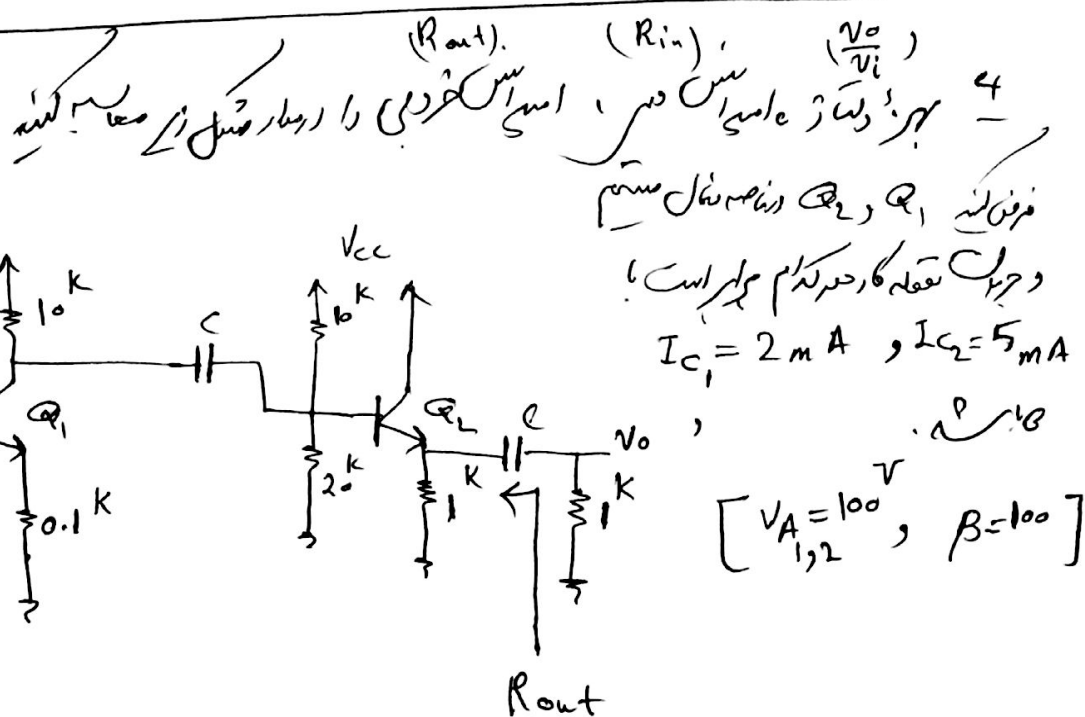 4 بهره ولتاژ (Vo/Vi)، امپدانس ورودی (Rin)، امپدانس خروجی (Rout). را در مدار شکل زیر محاسبه کنید
فرض کنید Q1 و Q2 در ناحیه فعال مستقیم
و جریان نقطه کار هر کدام برابر است با
IC1 = 2 mA , IC2 = 5 mA
باشد.
[VA1,2 = 100 V , β = 100]
Vcc
10 K
10 K
C
Q1
Q2
C
Vo
0.1 K
20 K
1 K
1 K
Rout